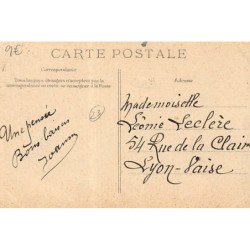 9€
CARTE POSTALE
Correspondance
Tous les pays étrangers n'acceptent pas la
correspondance au recto, se renseigner à la Poste
Adresse
Mademoiselle
Léonie Leclère
54 Rue de la Clair
Lyon-Vaise
Une pensée
Bons baisers